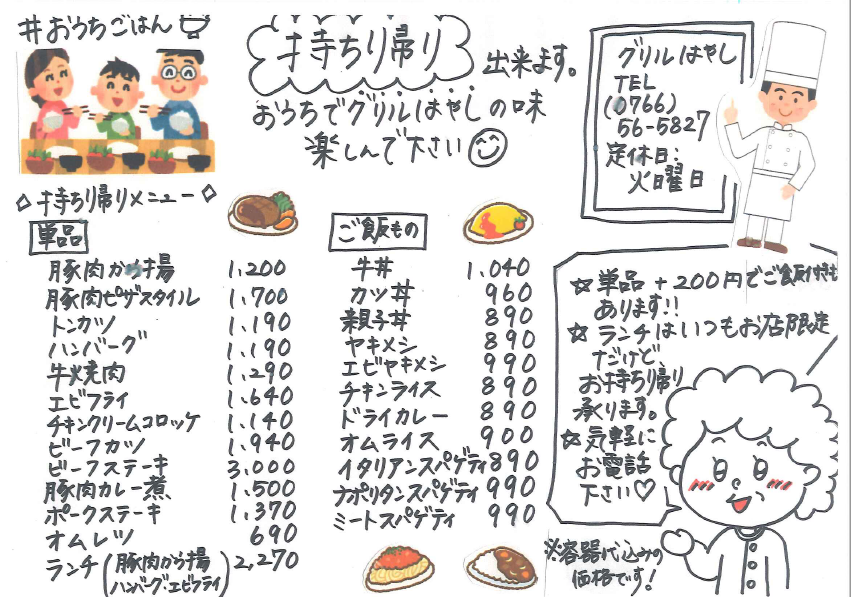 #おうちごはん
持ち帰り 出来ます。
おうちでグリルはやしの味
楽しんで下さい
グリルはやし
TEL
(0766)
56-5827
定休日:
火曜日
◇持ち帰りメニュー◇
単品
豚肉から揚 1,200
豚肉ピザスタイル 1,700
トンカツ 1,190
ハンバーグ 1,190
牛焼肉 1,290
エビフライ 1,640
チキンクリームコロッケ 1,140
ビーフカツ 1,940
ビーフステーキ 3,000
豚肉カレー煮 1,500
ポークステーキ 1,370
オムレツ 690
ランチ(豚肉から揚 ハンバーグ・エビフライ) 2,270
ご飯もの
牛丼 1,040
カツ丼 960
親子丼 890
ヤキメシ 890
エビヤキメシ 990
チキンライス 890
ドライカレー 890
オムライス 900
イタリアンスパゲティ 890
ナポリタンスパゲティ 990
ミートスパゲティ 990
☆単品+200円でご飯付きも
あります!!
☆ランチはいつもお店限定
だけど、
お持ち帰り
承ります。
☆気軽に
お電話
下さい♡
※容器代込みの
価格です!